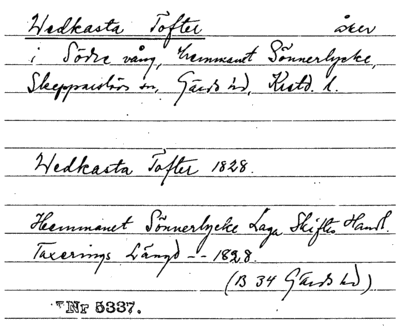 Wedkasta Tofter åker
i Södre vång, hemmanet Sönnerlycke,
Skepparslövs sn, Gärds hd, Kristd. l.
Wedkasta Tofter 1828.
Hemmanet Sönnerlycke Laga Skiftes Handl.
Taxerings Längd -- 1828.
(B 34 Gärds hd)
Nr 5337.